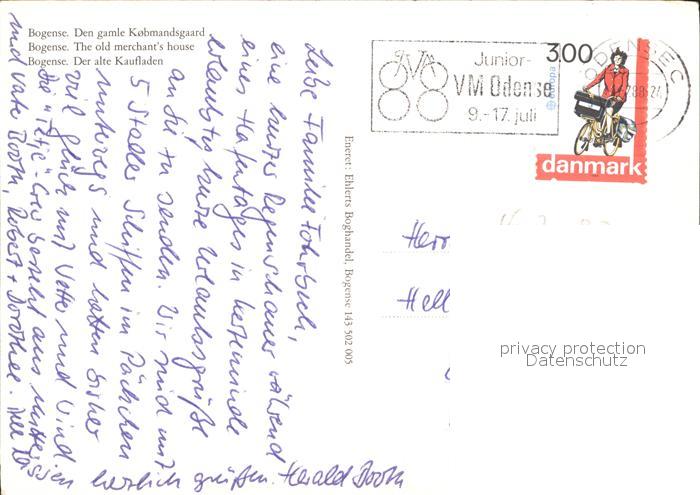 Bogense. Den gamle Købmandsgaard
Bogense. The old merchant's house
Bogense. Der alte Kaufladen
Junior-
VM Odense
9.-17. juli
ODENSE C
3.00
europa
danmark
Eneret: Ehlerts Boghandel, Bogense 143 502 005
Liebe Familie Fahrbuch,
eine kurze Regenschauer während
eines Hafentages in Kerteminde
erlaubt kurze Urlaubsgrüße
an Sie zu senden. Wir sind mit
5 Stader Schiffen im Päckchen
unterwegs und hatten bisher
viel Glück mit Wetter und Wind
Die "Tetje"-Crew besteht aus Mutter
und Vater Booth, Robert + Dorothee. Wir lassen
herzlich grüßen. Harald Booth
Herr
Hell
privacy protection
Datenschutz